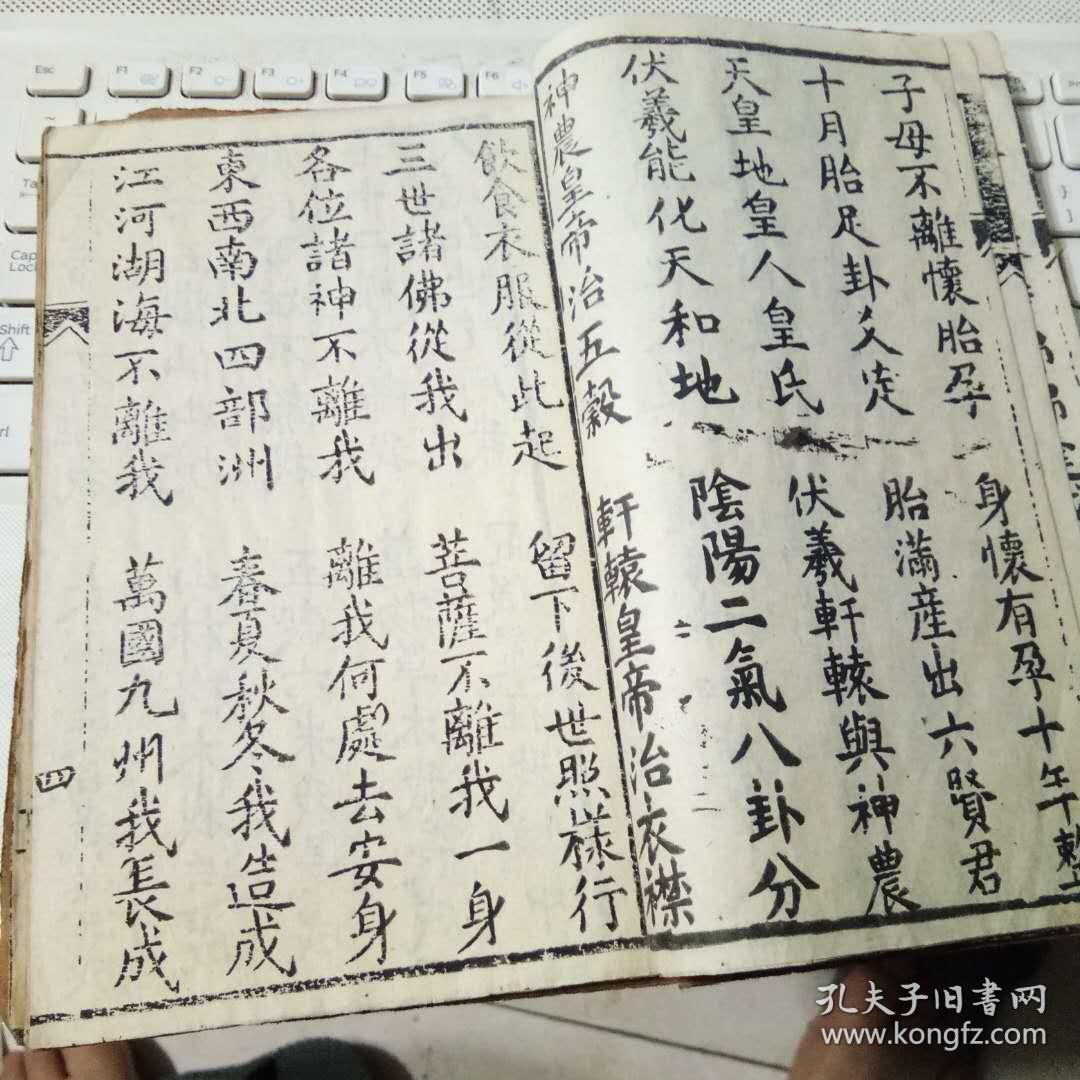 子母不離懷胎孕 身懷有孕十年整
十月胎足卦爻定 胎滿産出六賢君
天皇地皇人皇氏 伏羲軒轅與神農
伏羲能化天和地 陰陽二氣八卦分
神農皇帝治五穀 軒轅皇帝治衣襟
飲食衣服從此起 留下後世照樣行
三世諸佛從我出 菩薩不離我一身
各位諸神不離我 離我何處去安身
東西南北四部洲 春夏秋冬我造成
江河湖海不離我 萬國九州我長成
四
Esc F1 F2 F3 F4 F5 F6
Shift
孔夫子旧書网
www.kongfz.com